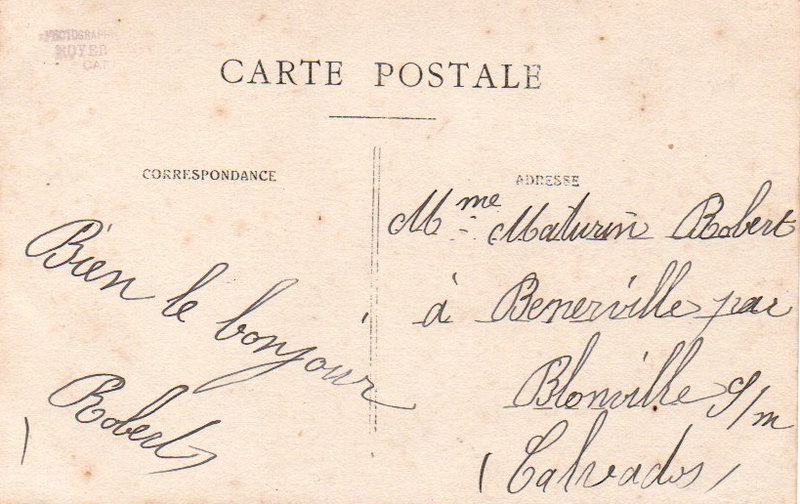 PHOTOGRAPHE
ROYER
CARTE POSTALE
CORRESPONDANCE
Bien le bonjour
Robert
ADRESSE
Mme Maturin Robert
à Benerville par
Blonville s/m
(Calvados)